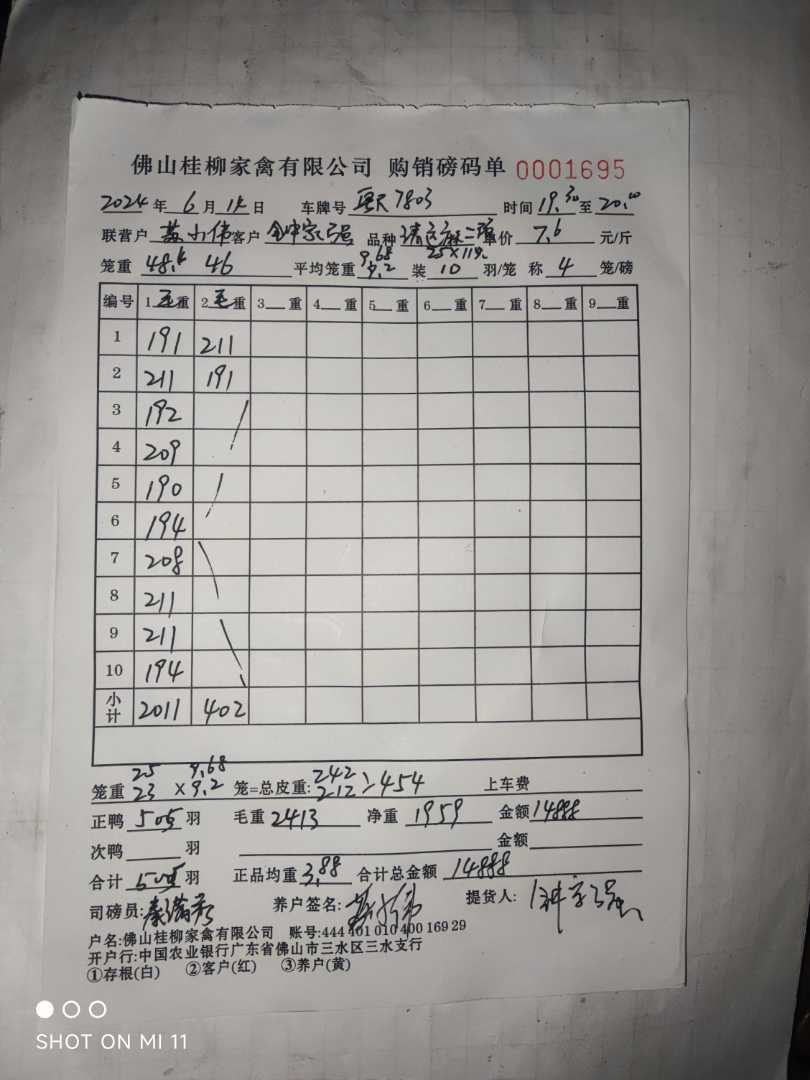 佛山桂柳家禽有限公司 购销磅码单 0001695
2024 年 6 月 日 车牌号 7803 时间 19.30 至 20.00
联营户 苏小伟 客户 品种 单价 7.6 元/斤
25×11只
笼重 48.4 46 平均笼重 9.68 9.2 装 10 羽/笼 称 4 笼/磅
编号 1 毛 重 2 毛 重 3 重 4 重 5 重 6 重 7 重 8 重 9 重
1 191 211
2 211 191
3 192
4 209
5 190
6 194
7 208
8 211
9 211
10 194
小计 2011 402
25 9.68
笼重 23 × 9.2 笼=总皮重: 242 212 >454 上车费
正鸭 505 羽 毛重 2413 净重 1959 金额 14888
次鸭 羽 金额
合计 505 羽 正品均重 3.88 合计总金额 14888
司磅员: 养户签名: 提货人:
户名:佛山桂柳家禽有限公司 账号:444 401 010 400 169 29
开户行:中国农业银行广东省佛山市三水区三水支行
①存根(白) ②客户(红) ③养户(黄)
SHOT ON MI 11